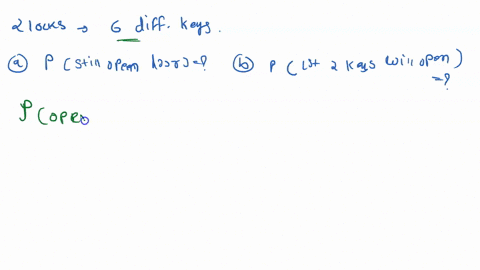 2 locks → 6 diff. keys.
ⓐ P (still open door) = ? ⓑ P (1st 2 keys will open) = ?
P (ope